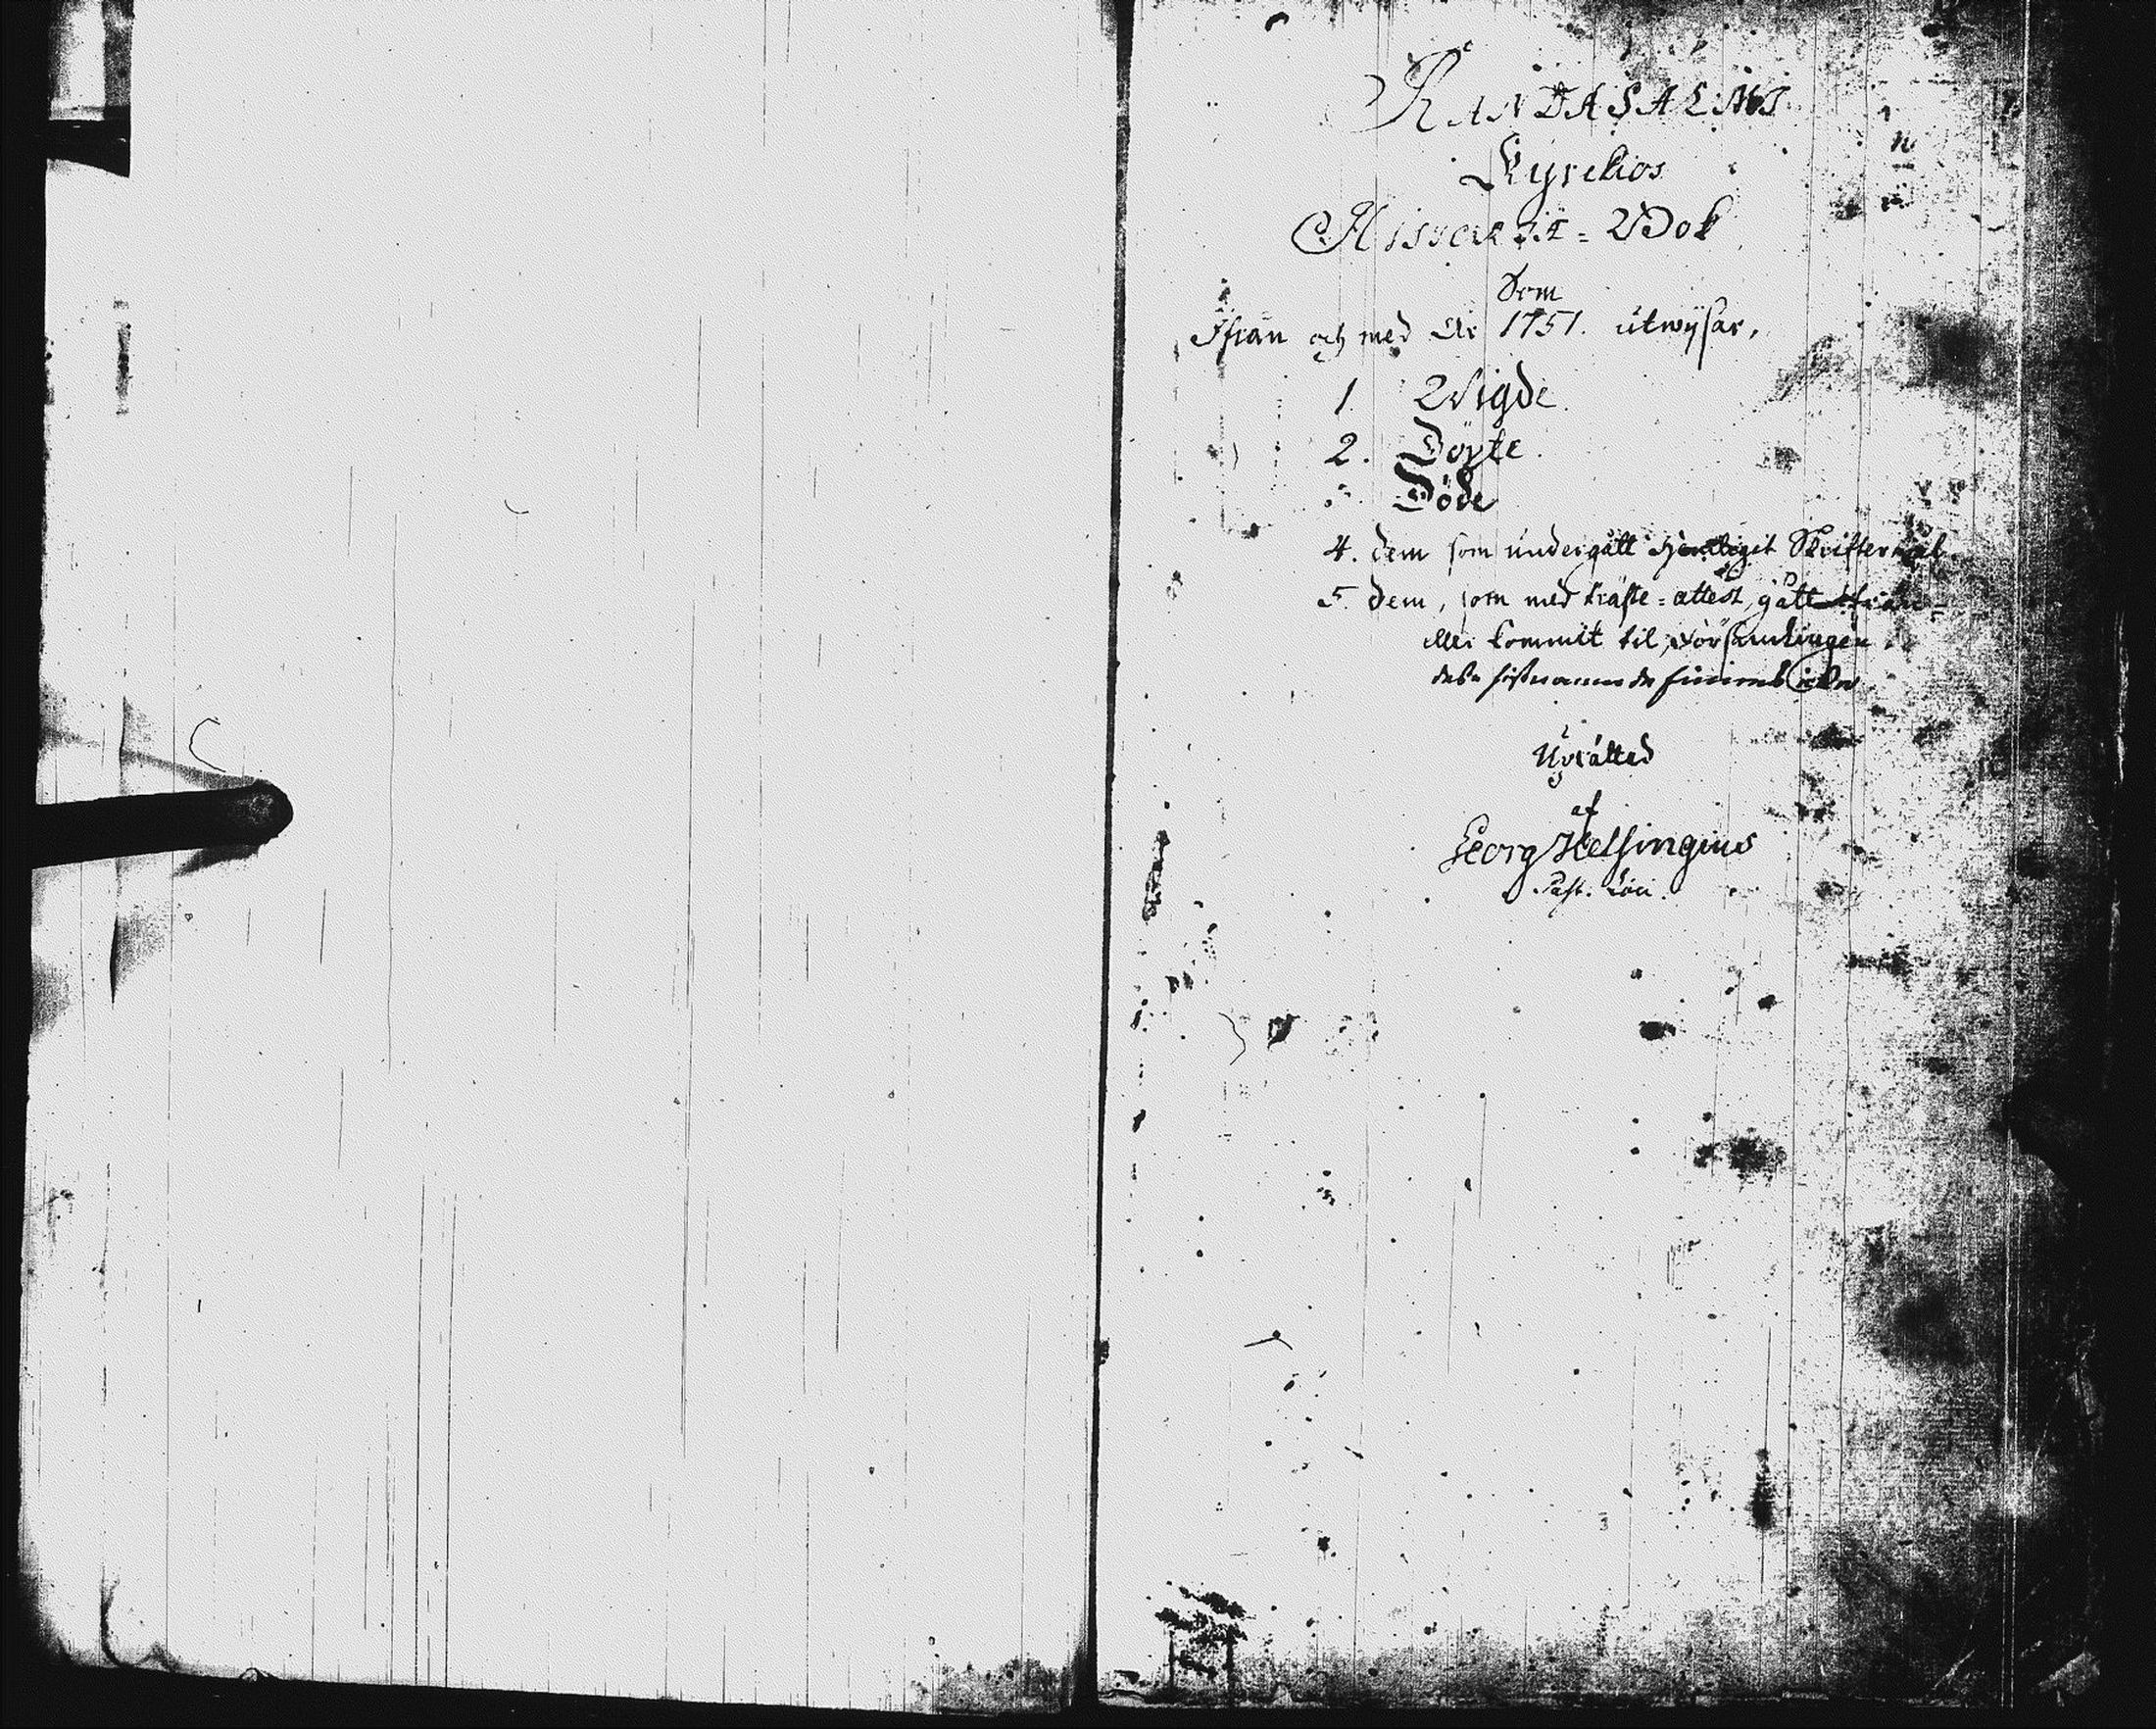 RANDASALMI
Kyrckios
Historiæ-Bok
Som
Ifrån och med År 1751. utwijsar,
1. Wigde.
2. Döpte.
3. Döde
4. dem som undergått Skriftermål
5. dem, som med Präste-attest, gått ifrån
eller kommit til, Församlingen.
Uprättad
af
Georg Helsingius
Past. Loci.